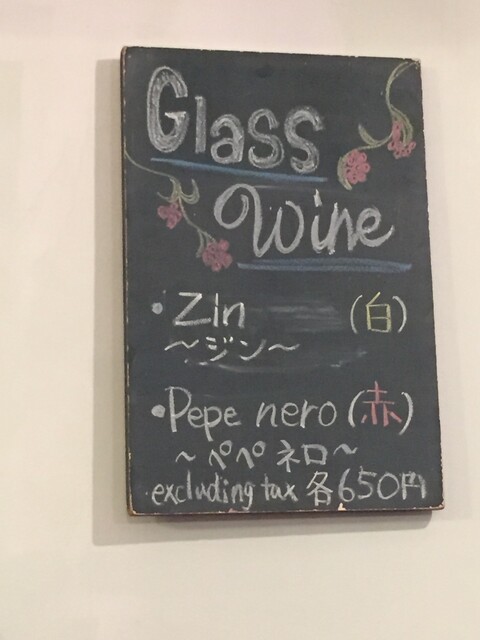 Glass
Wine
・Zin (白)
～ジン～
・Pepe nero (赤)
～ペペネロ～
excluding tax 各650円